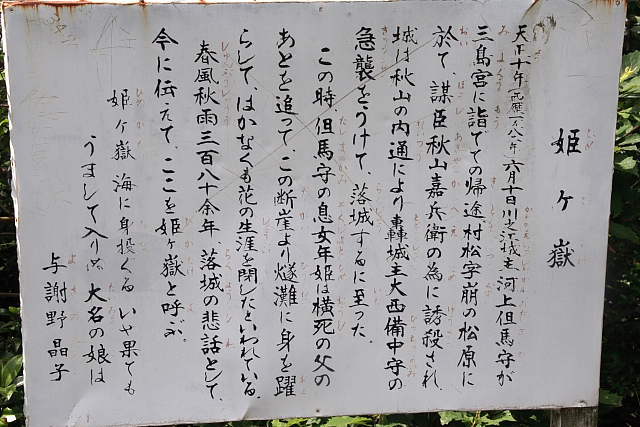 姫ケ嶽
天正十年(西歴一五八二年)六月十日川之江城主河上但馬守が
三島宮に詣でての帰途村松字崩の松原に
於て、謀臣秋山嘉兵衛の為に誘殺され、
城は秋山の内通により轟城主大西備中守の
急襲をうけて、落城するに至った。
この時但馬守の息女年姫は横死の父の
あとを追ってこの断崖より燧灘に身を躍
らして、はかなくも花の生涯を閉じたといわれている。
春風秋雨三百八十余年、落城の悲話として、
今に伝えて、ここを姫ヶ嶽と呼ぶ。
姫ヶ嶽海に身投ぐるいや果ても
うましで入りぬ大名の娘は
与謝野晶子